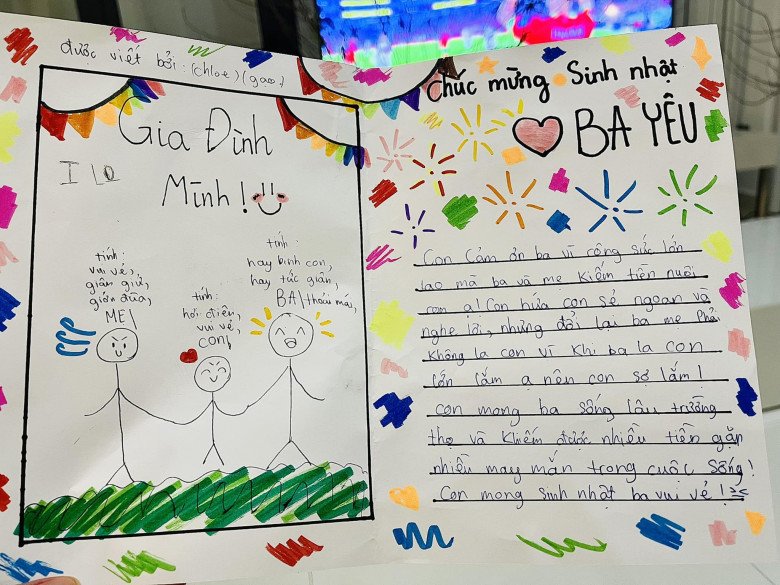 được viết bởi: (chloe) (gạo)
Gia Đình
I LO
Mình!
tính:
vui vẻ,
giận giữ,
giỡn đùa,
MẸ
tính:
hơi điệu,
vui vẻ,
con
tính:
hay binh con,
hay tức giận,
BA thoải mái,
Chúc mừng Sinh nhật
BA YÊU
Con cảm ơn ba vì công sức lớn
lao mà ba và mẹ kiếm tiền nuôi
con ạ! Con hứa con sẽ ngoan và
nghe lời, nhưng đổi lại ba mẹ phải
không la con vì khi ba la con
lớn lắm ạ nên con sợ lắm!
con mong ba sống lâu trường
thọ và kiếm được nhiều tiền gặp
nhiều may mắn trong cuộc sống!
Con mong sinh nhật ba vui vẻ!